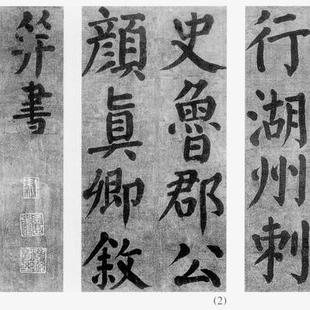 行湖州刺
史魯郡公
顏眞卿敘
并書
(2)